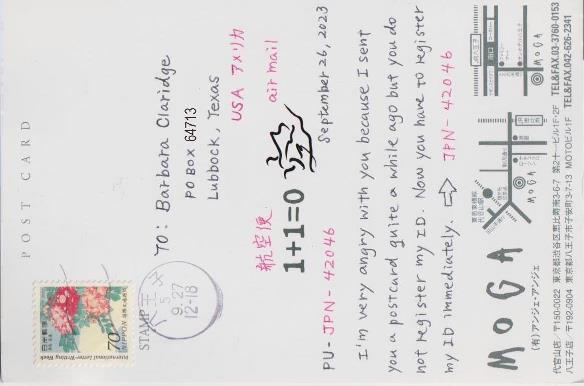 POST CARD
STAMP
日本郵便
NIPPON
70
International Letter-Writing Week
八王子
5.
9.27
12-18
TO: Barbara Claridge
PO BOX 64713
Lubbock, Texas
USA アメリカ
航空便 air mail
1+1=0
PU-JPN-42046 September 26, 2023
I'm very angry with you because I sent
you a postcard quite a while ago but you do
not register my ID. Now you have to register
my ID immediately. ⇨ JPN-42046
MOGA
(有)アンジェ・アンジェ
代官山店／〒150-0022 東京都渋谷区恵比寿南3-6-7 第2十一ビル1F・2F TEL&FAX.03-3760-0153
八王子店／〒192-0904 東京都八王子市子安町3-7-13 MOTOビル1F TEL&FAX.042-626-2341
東急東横線
代官山駅
MOGA
MOGA